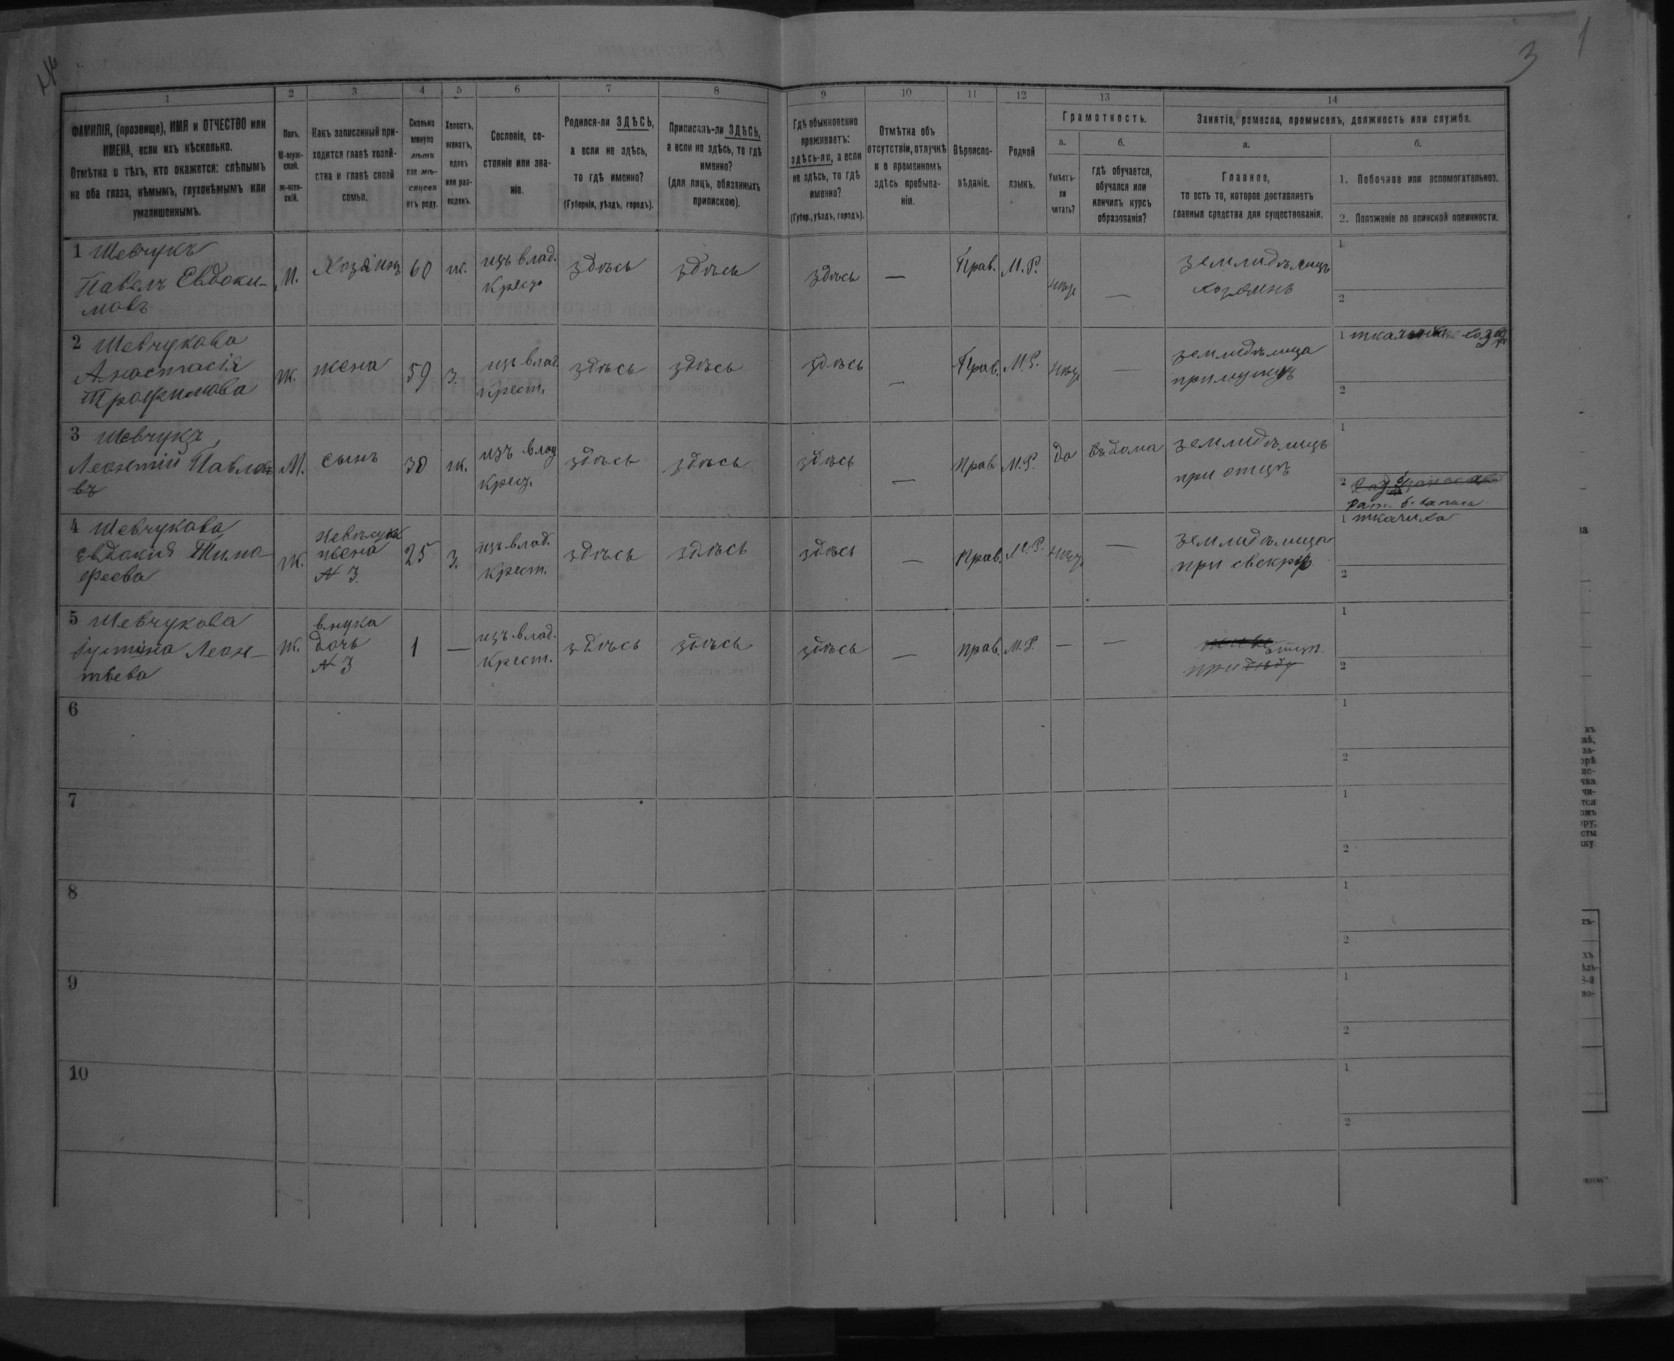 3
1
1 2 3 4 5 6 7 8 9 10 11 12 13 14
ФАМИЛІЯ, (прозвище), ИМЯ и ОТЧЕСТВО или
ИМЕНА, если ихъ нѣсколько.
Отмѣтка о тѣхъ, кто окажется: слѣпымъ
на оба глаза, нѣмымъ, глухонѣмымъ или
умалишеннымъ.
Полъ.
М-муж-
ской.
Ж-жен-
скій.
Какъ записанный при-
ходится главѣ хозяй-
ства и главѣ своей
семьи.
Сколько
минуло
лѣтъ
или мѣ-
сяцевъ
отъ роду.
Холостъ,
женатъ,
вдовъ
или раз-
веденъ.
Сословіе, со-
стояніе или зва-
ніе.
Родился-ли ЗДѢСЬ,
а если не здѣсь,
то гдѣ именно?
(Губернія, уѣздъ, городъ).
Приписанъ-ли ЗДѢСЬ,
а если не здѣсь, то гдѣ
именно?
(для лицъ, обязанныхъ
припискою).
Гдѣ обыкновенно
проживаетъ:
здѣсь-ли, а если
не здѣсь, то гдѣ
именно?
(Губер., уѣздъ, городъ).
Отмѣтка объ
отсутствіи, отлучкѣ
и о временномъ
здѣсь пребыва-
ніи.
Вѣроиспо-
вѣданіе.
Родной
языкъ.
Грамотность.
а.
Умѣетъ-
ли
читать?
б.
гдѣ обучается,
обучался или
кончилъ курсъ
образованія?
Занятіе, ремесло, промыселъ, должность или служба.
а.
Главное,
то есть то, которое доставляетъ
главныя средства для существованія.
б.
1. Побочное или вспомогательное.
2. Положеніе по воинской повинности.
1 Шевчукъ
Павелъ Евдоки-
мовъ
М. Хозяинъ 60 ж. изъ влад. крест. здѣсь здѣсь здѣсь — Прав. М.Р. —
земледѣлецъ
хозяинъ
1
2
2 Шевчукова
Анастасія
Трофимова
ж. жена 59 з. изъ влад. крест. здѣсь здѣсь здѣсь — Прав. М.Р. —
земледѣлица
при мужѣ
1
2
3 Шевчукъ
Леонтій Павло-
въ
М. сынъ 30 ж. изъ влад. крест. здѣсь здѣсь здѣсь — Прав. М.Р. да дома
земледѣлецъ
при отцѣ
1
2
4 Шевчукова
Евдокія Тимо-
феева
ж. невѣстка
жена
№ 3
25 з. изъ влад. крест. здѣсь здѣсь здѣсь — Прав. М.Р. —
земледѣлица
при свекрѣ
1 ткачиха
2
5 Шевчукова
Іустина Леон-
тьева
ж. внука
дочь
№ 3
1 — изъ влад. крест. здѣсь здѣсь здѣсь — Прав. М.Р. — —
при
1
2
6
1
2
7
1
2
8
1
2
9
1
2
10
1
2